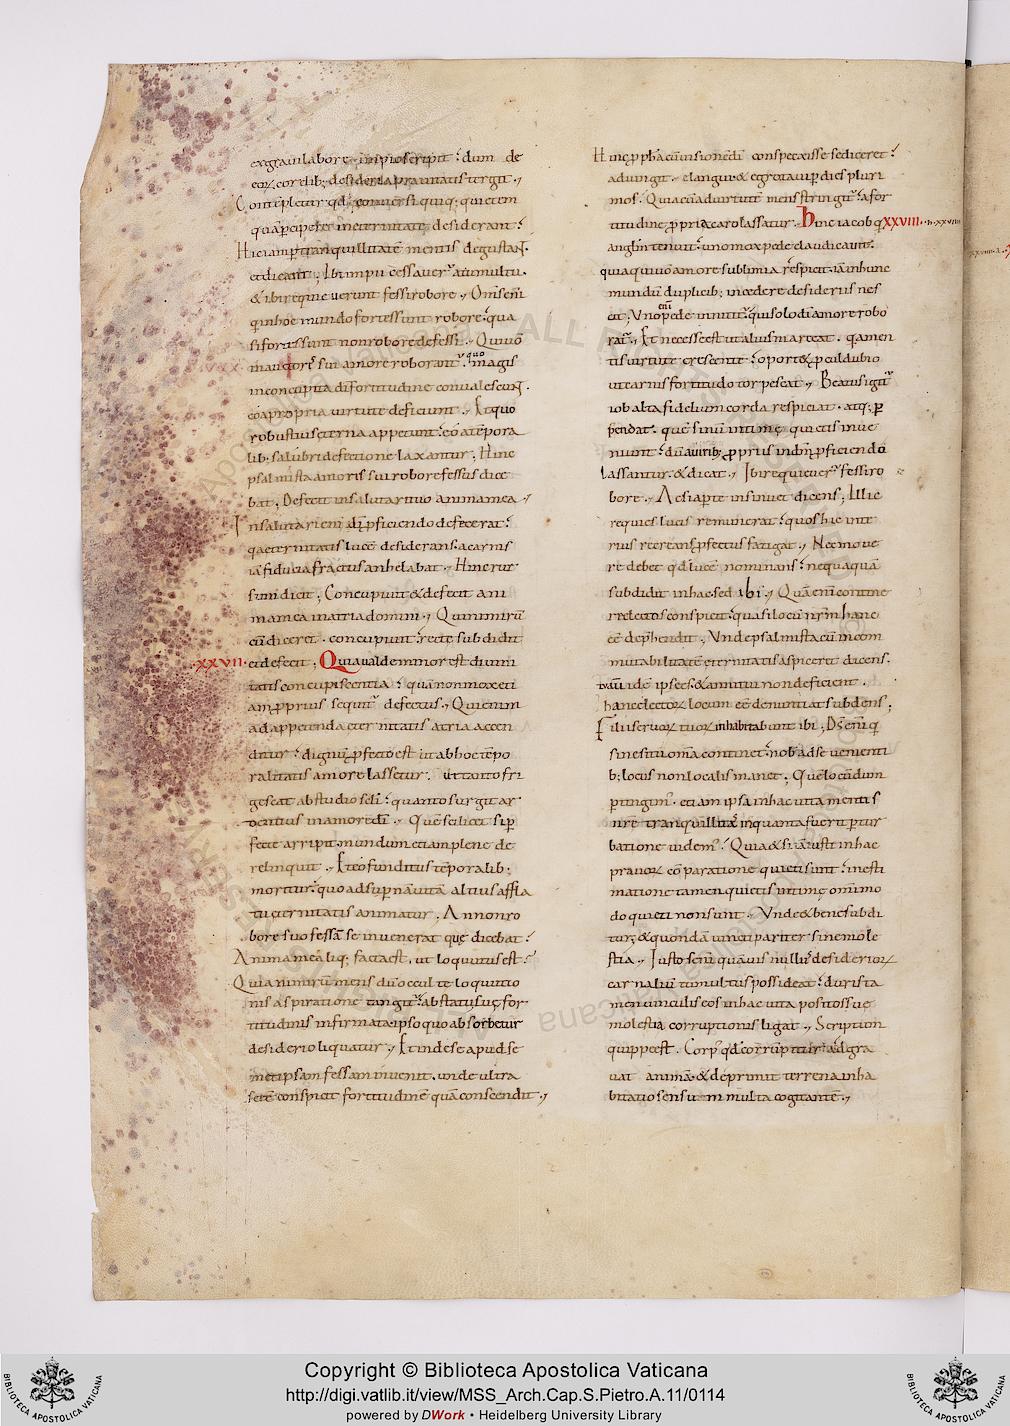 ex graui labore impios eripit; dum de
eoꝝ cordib; desideria prauitatis tergit.
Contipletur qd conuersi quiq; quietem
quā percipere in eternitate desiderant;
Hic iam per tranquillitatē mentis degustaꞃ.
et dicant; Ibi impii cessauer a tumultu.
& ibi requieuerunt fessi robore. Om̄s eni
qui in hoc mundo fortes sunt robore. qua
si fortes sunt non robore defessi. Qui uo
in auctoris sui amore roborant. quo magis
in concupita di fortitudine conualescunt.
eo a propria uirtute deficiunt. Et quo
robustius eterna appetunt; eo a tēpora
lib; salubri defectione laxantur; Hinc
psalmista amoris sui robore fessus dice
bat; Defecit in salutari tuo anima mea
In salutari eni di proficiendo defecerat.
q aeternitatis lucē desiderans. a carnis
iā fiducia fractus anhelabat. Hinc rur
sum dicit; Concupiuit & defecit ani
ma mea in atria domini. Qui nimirū
cū diceret. concupiuit; recte subdidit
.xxvii. et defecit; Quia ualde minor est diuini
tatis concupiscentia; quā non mox eti
am proprius sequit defectus. Qui enim
ad appetenda eternitatis atria accen
ditur; dignū profecto est ut ab hoc tēpo
ralitatis amore lassetur. ut tanto fri
gescat ab studio sclī; quanto surgit ar
dentius in amore di. Quē scilicet si per
fecte arripit. mundum etiam plene de
relinquit. Et eo funditus tēporalib;
moritur; quo ad supernā uitā altius affla
tu eternitatis animatur; An non ro
bore suo fessā se inuenerat quę dicebat;
Anima mea liq; facta est. ut loquutus est;
Quia nimirū mens dū occulte loquutio
nis aspiratione tangit; ab statu suę for
titudinis infirmata. ipso quo absorbetur
desiderio liquatur. Et inde se apud se
met ipsam fessam inuenit. unde ultra
se eē conspicit fortitudinē quā conscendit.
Hinc propheta cū uisionē di conspexisse se diceret;
adiungit. elangui & egrotaui per dies pluri
mos. Quia cū ad uirtutē mens stringit; a for
titudine propria caro lassatur. Hinc iacob q xxviii.
anglm tenuit; uno mox pede claudicauit.
quia qui uo amore sublimia respicit. iā in hunc
mundū duplicib; incedere desideriis nes
cit; Uno eni pede innitit; qui solo di amore robo
rat. Et necesse est ut alius marceat. q amen
tis uirtute crescente; oportet procul dubio
ut carnis fortitudo torpescat. Beatus igit
iob alta fidelium corda respiciat. atq; per
pendat. quē sinū intimę quietis inue
niunt; dū a uirib; propriis in dm proficiendo
lassantur. & dicat. Ibi requieuer fessi ro
bore. Ac si aperte insinuet dicens; Illic
requies lucis remunerat; quos hic inte
rius reereans profectus fatigat. Nec moue
re debet qd lucē nominans; nequaquā
subdidit in hac. sed ibi. Quā eni contine
re electos conspicit; quasi locū nrm hanc
eē deprehendit; Unde psalmista cū incom
mutabilitatē eternitatis aspiceret dicens.
tu au idē ipse es. & anni tui non deficient.
hanc electoꝝ locum eē denuntiat subdens;
Filii seruoꝝ tuoꝝ inhabitabunt ibi; Ds eni q
sine situ omia continet; nob ad se uenienti
b; locus non localis manet; Quē locū dum
pertingim. etiam ipsa in hac uita mentis
nrē tranquillitas in quanta fuerit pertur
batione uidem. Quia & si iā iusti in hac
prauoꝝ cōparatione quieti sunt; in esti
matione tamen quietis intimę omnimo
do quieti non sunt. Unde & bene subdi
tur; & quondā uincti pariter sine mole
stia. Iustos eni quāuis nullus desiderioꝝ
carnaliū tumultus possideat; durissa
men uinculis eos in hac uita positos suę
molestia corruptionis ligat. Scriptum
quippe est. Corp qd corrumpitur adgra
uat animā. & deprimit terrena inha
bitatio sensum multa cogitantē.
Copyright © Biblioteca Apostolica Vaticana
http://digi.vatlib.it/view/MSS_Arch.Cap.S.Pietro.A.11/0114
powered by DWork • Heidelberg University Library
BIBLIOTECA APOSTOLICA VATICANA
BIBLIOTECA APOSTOLICA VATICANA